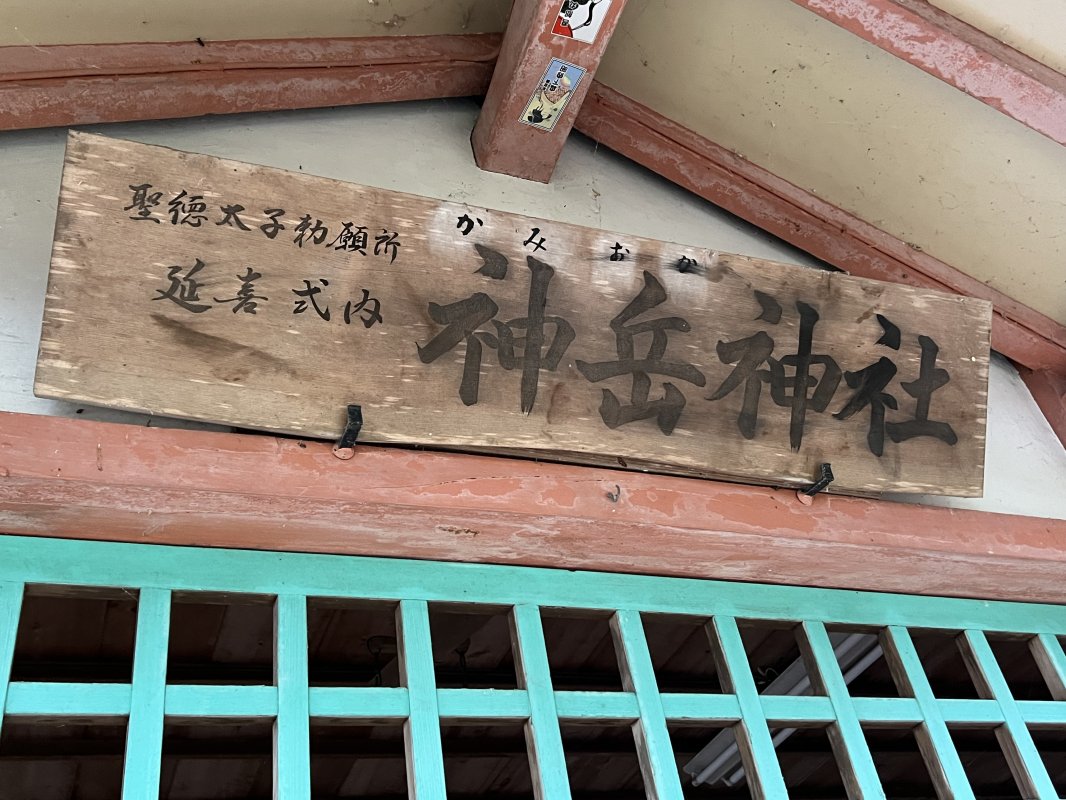 聖徳太子勅願所
延喜式内
かみおか
神岳神社